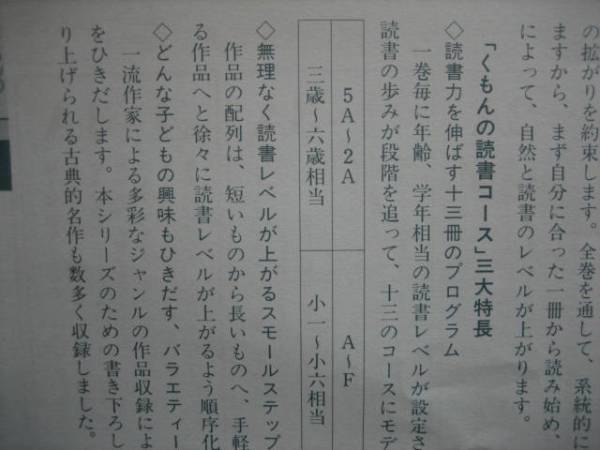 の拡がりを約束します。全巻を通して、系統的に
ますから、まず自分に合った一冊から読み始め、
によって、自然と読書のレベルが上がります。
「くもんの読書コース」三大特長
◇読書力を伸ばす十三冊のプログラム
一巻毎に年齢、学年相当の読書レベルが設定さ
読書の歩みが段階を追って、十三のコースにモデ
5A〜2A
A〜F
三歳〜六歳相当
小一〜小六相当
◇無理なく読書レベルが上がるスモールステップ
作品の配列は、短いものから長いものへ、手軽
る作品へと徐々に読書レベルが上がるよう順序化
◇どんな子どもの興味もひきだす、バラエティー
一流作家による多彩なジャンルの作品収録によ
をひきだします。本シリーズのための書き下ろし
り上げられる古典的名作も数多く収録しました。